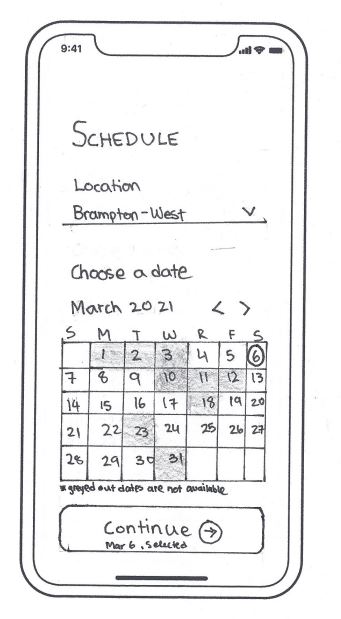 9:41
SCHEDULE
Location
Brampton-West
Choose a date
March 2021 < >
S M T W R F S
1 2 3 4 5 6
7 8 9 10 11 12 13
14 15 16 17 18 19 20
21 22 23 24 25 26 27
28 29 30 31
* greyed out dates are not available
Continue →
Mar 6, Selected